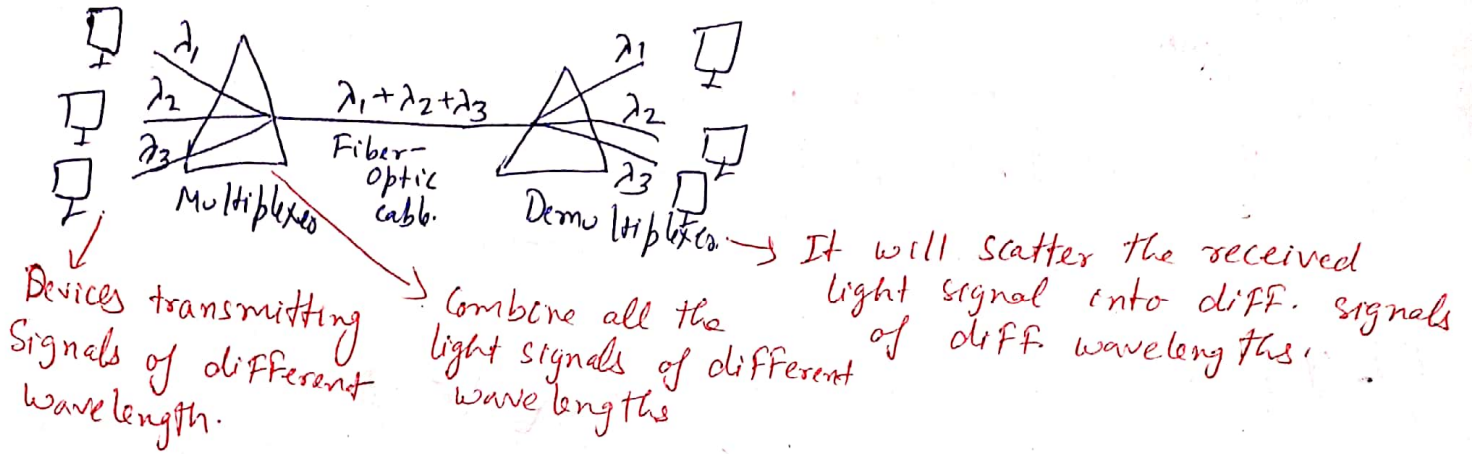 λ1
λ2
λ3
Multiplexer
λ1+λ2+λ3
Fiber-
optic
cable.
λ1
λ2
λ3
Demultiplexer.
Devices transmitting
Signals of different
wavelength.
Combine all the
light signals of different
wavelengths
It will scatter the received
light signal into diff. signals
of diff. wavelengths.